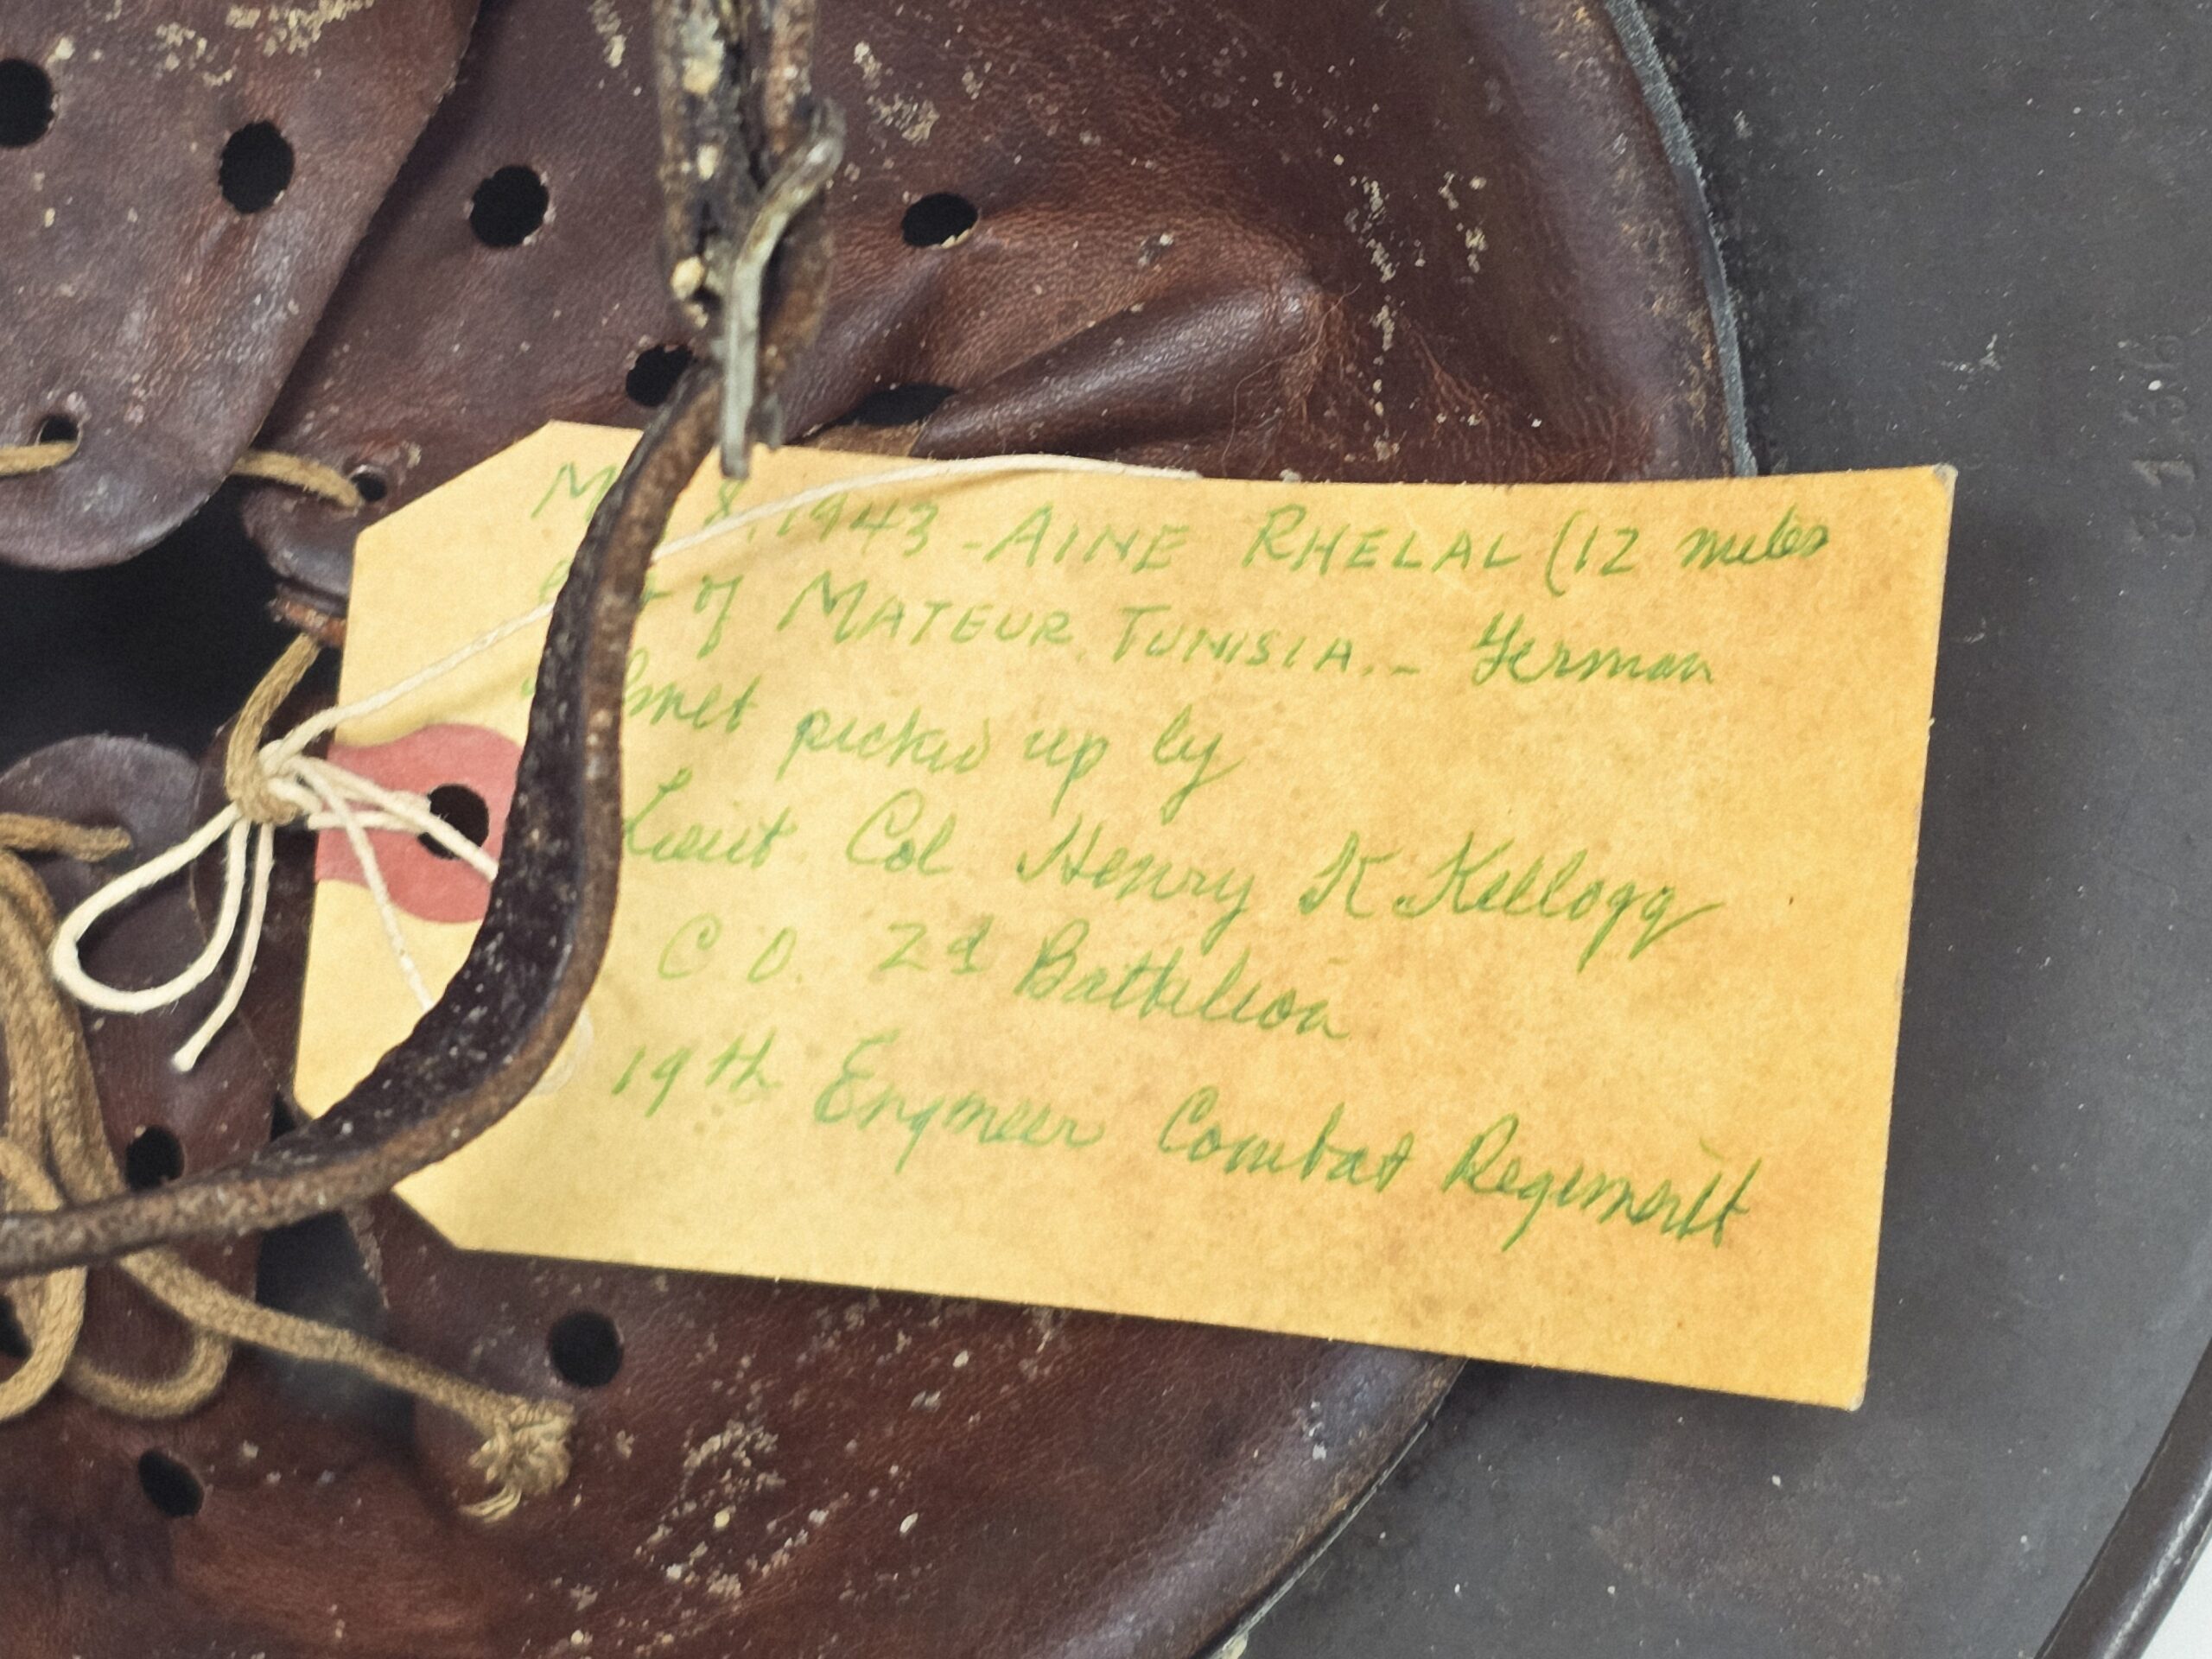 8, 1943 - AINE RHELAL (12 miles
of MATEUR TUNISIA. - German
picked up by
Lieut Col Henry K Kellogg
C O. 2d Battalion
19th Engineer Combat Regiment